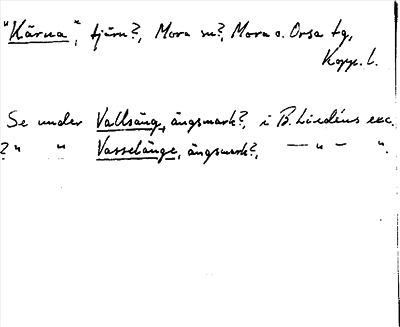 "Kärna", tjärn?, Mora sn?, Mora o. Orsa tg,
Kopp. l.
Se under Vallsäng, ängsmark?, i B. Lindéns exc.
? " " Vasselänge, ängsmark?, — " — ".